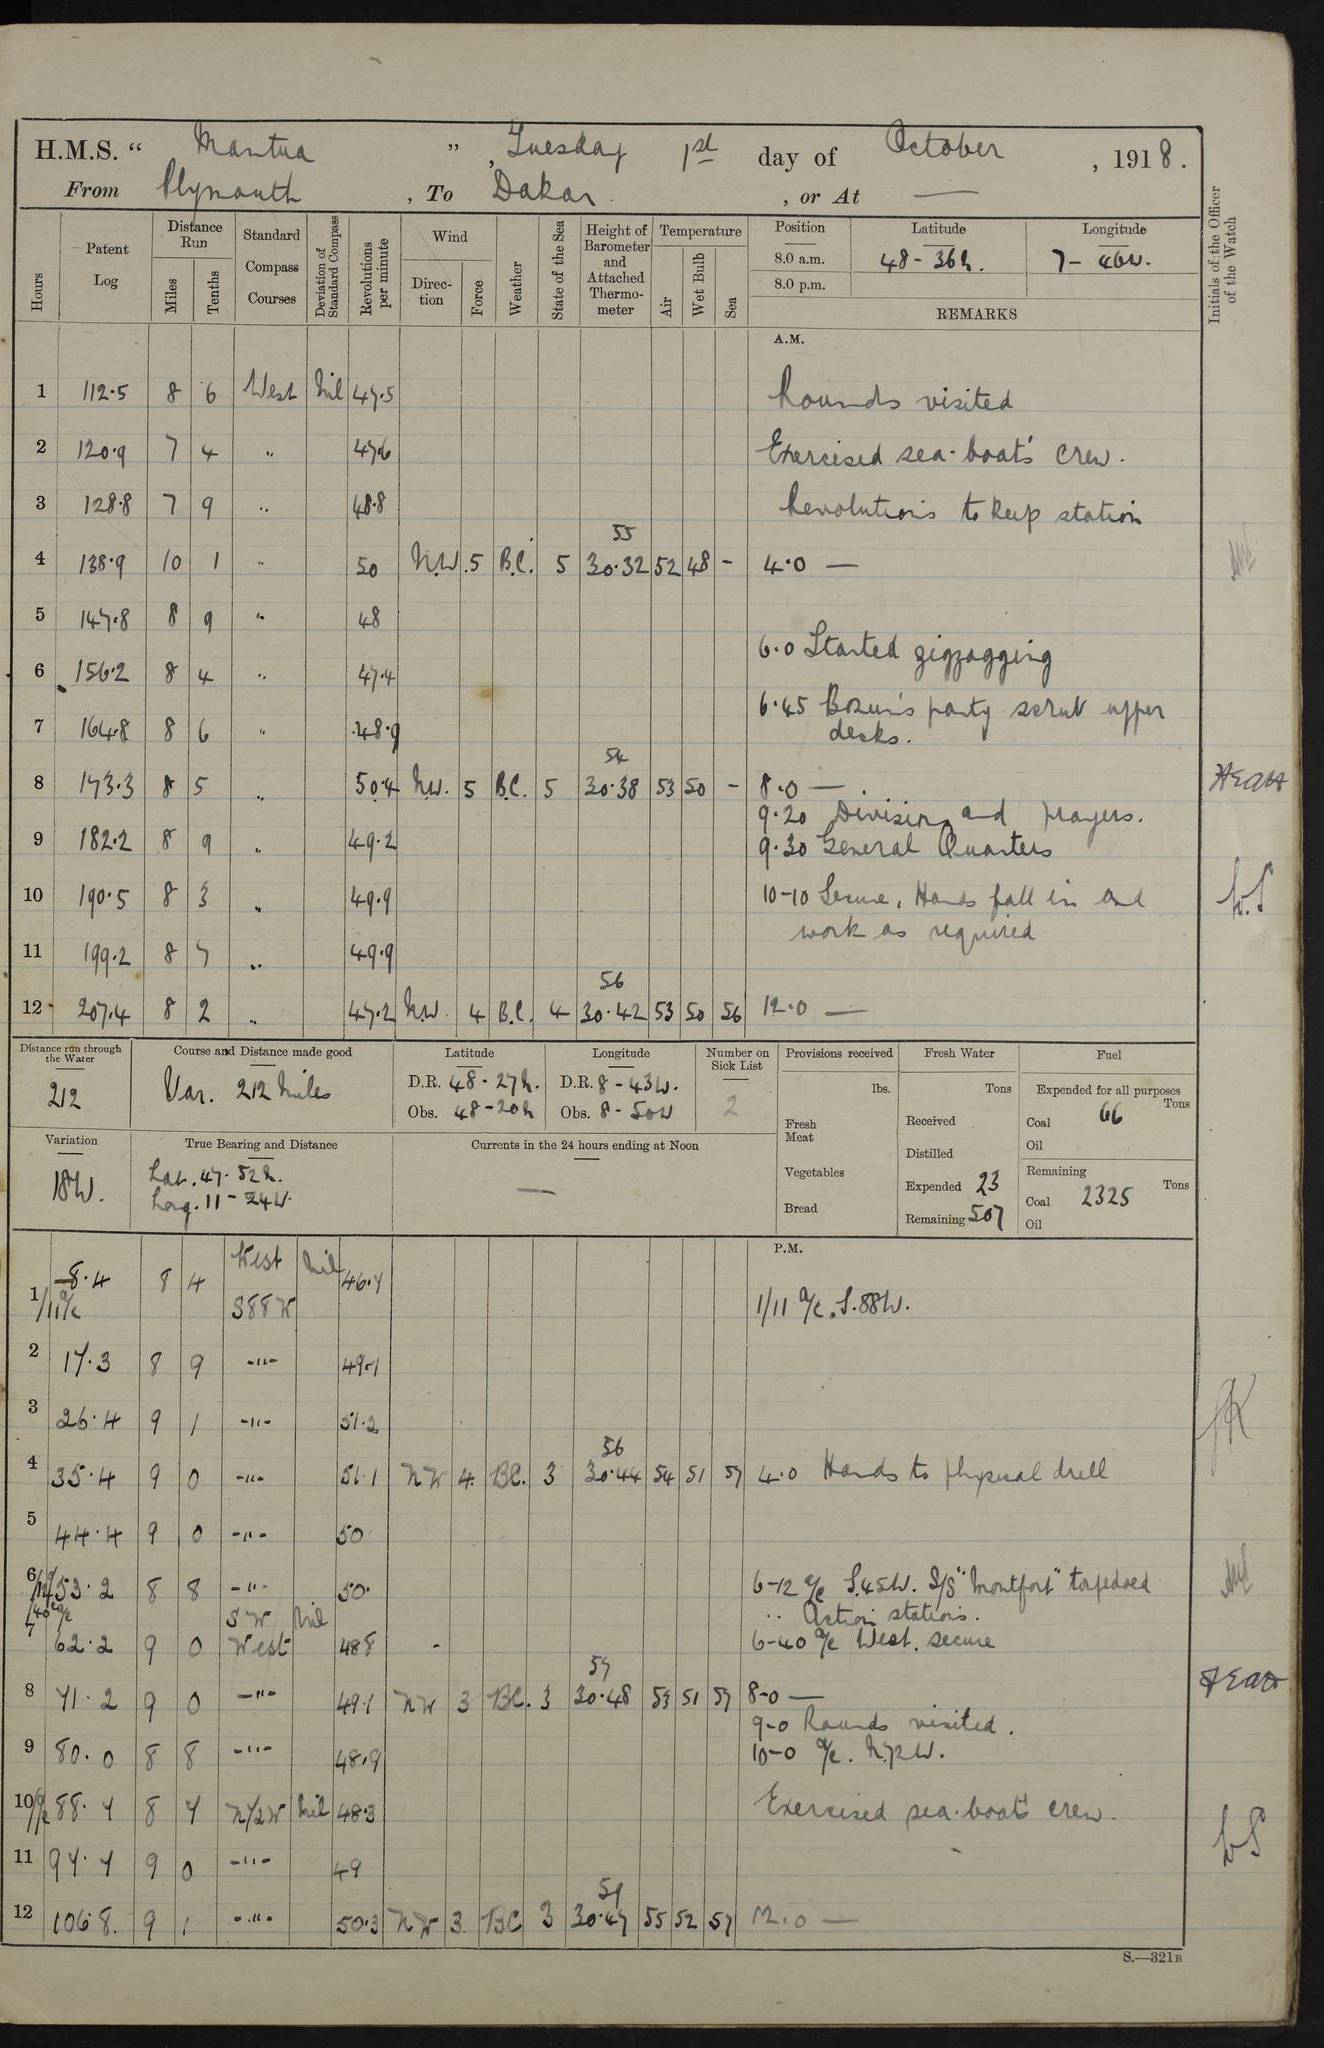 H.M.S. “ Mantua ” , Tuesday 1st day of October , 1918.
From Plymouth , To Dakar , or At —
Hours
Patent Log
Distance Run
Miles
Tenths
Standard Compass Courses
Deviation of Standard Compass
Revolutions per minute
Wind
Direction
Force
Weather
State of the Sea
Height of Barometer and Attached Thermometer
Temperature
Air
Wet Bulb
Sea
Position
Latitude
Longitude
8.0 a.m. 48-36N. 7-46W.
8.0 p.m.
REMARKS
Initials of the Officer of the Watch
A.M.
1 112.5 8 6 West Nil 47.5 Rounds visited
2 120.9 7 4 " 47.6 Exercised sea-boat's crew.
3 128.8 7 9 " 48.8 Revolutions to keep station
55
4 138.9 10 1 " 50 N.W. 5 B.C. 5 30.32 52 48 - 4.0 —
5 147.8 8 9 " 48
6.0 Started zigzagging
6 156.2 8 4 " 47.4
6.45 Bosun's party scrub upper
7 164.8 8 6 " 48.9 decks.
54
8 173.3 8 5 " 50.4 N.W. 5 B.C. 5 30.38 53 50 - 8.0 —
9.20 Division and prayers.
9 182.2 8 9 " 49.2 9.30 General Quarters
10 190.5 8 3 " 49.9 10-10 Secure, Hands fall in and
work as required
11 199.2 8 7 " 49.9
56
12 207.4 8 2 " 47.2 N.W. 4 B.C. 4 30.42 53 50 56 12.0 —
Distance run through the Water
212
Course and Distance made good
Var. 212 Miles
Latitude
D.R. 48-27N.
Obs. 48-20N
Longitude
D.R. 8-43W.
Obs. 8-50W
Number on Sick List
2
Provisions received
lbs.
Fresh Meat
Vegetables
Bread
Fresh Water
Tons
Received
Distilled
Expended 23
Remaining 507
Fuel
Expended for all purposes
Tons
Coal 66
Oil
Remaining
Tons
Coal 2325
Oil
Variation
18W.
True Bearing and Distance
Lat. 47-52N.
Long. 11-24W.
Currents in the 24 hours ending at Noon
—
P.M.
1 8.4 8 4 West Nil 46.7
/11 a/c S88W 1/11 a/c. S.88W.
2 17.3 8 9 -"- 49.1
3 26.4 9 1 -"- 51.2
56
4 35.4 9 0 -"- 51.1 NW 4. BC. 3 30.44 54 51 57 4.0 Hands to physical drill
5 44.4 9 0 -"- 50
6 /12 53.2 8 8 -"- 50. 6-12 a/c S.45W. S/S "Montfort" torpedoed
/40 a/c SW Nil " Action stations.
7 62.2 9 0 West 48.8 6-40 a/c West. secure
57
8 71.2 9 0 -"- 49.1 NW 3 BC. 3 30.48 53 51 57 8-0 —
9-0 Rounds visited.
9 80.0 8 8 -"- 48.9 10-0 a/c. N.72W.
10 a/c 88.7 8 7 N72W Nil 48.3 Exercised sea-boat's crew.
11 97.7 9 0 -"- 49
12 106.8. 9 1 -"- 50.3 NW 3. BC 3 30.47 55 52 57 12.0 —
S.—321B